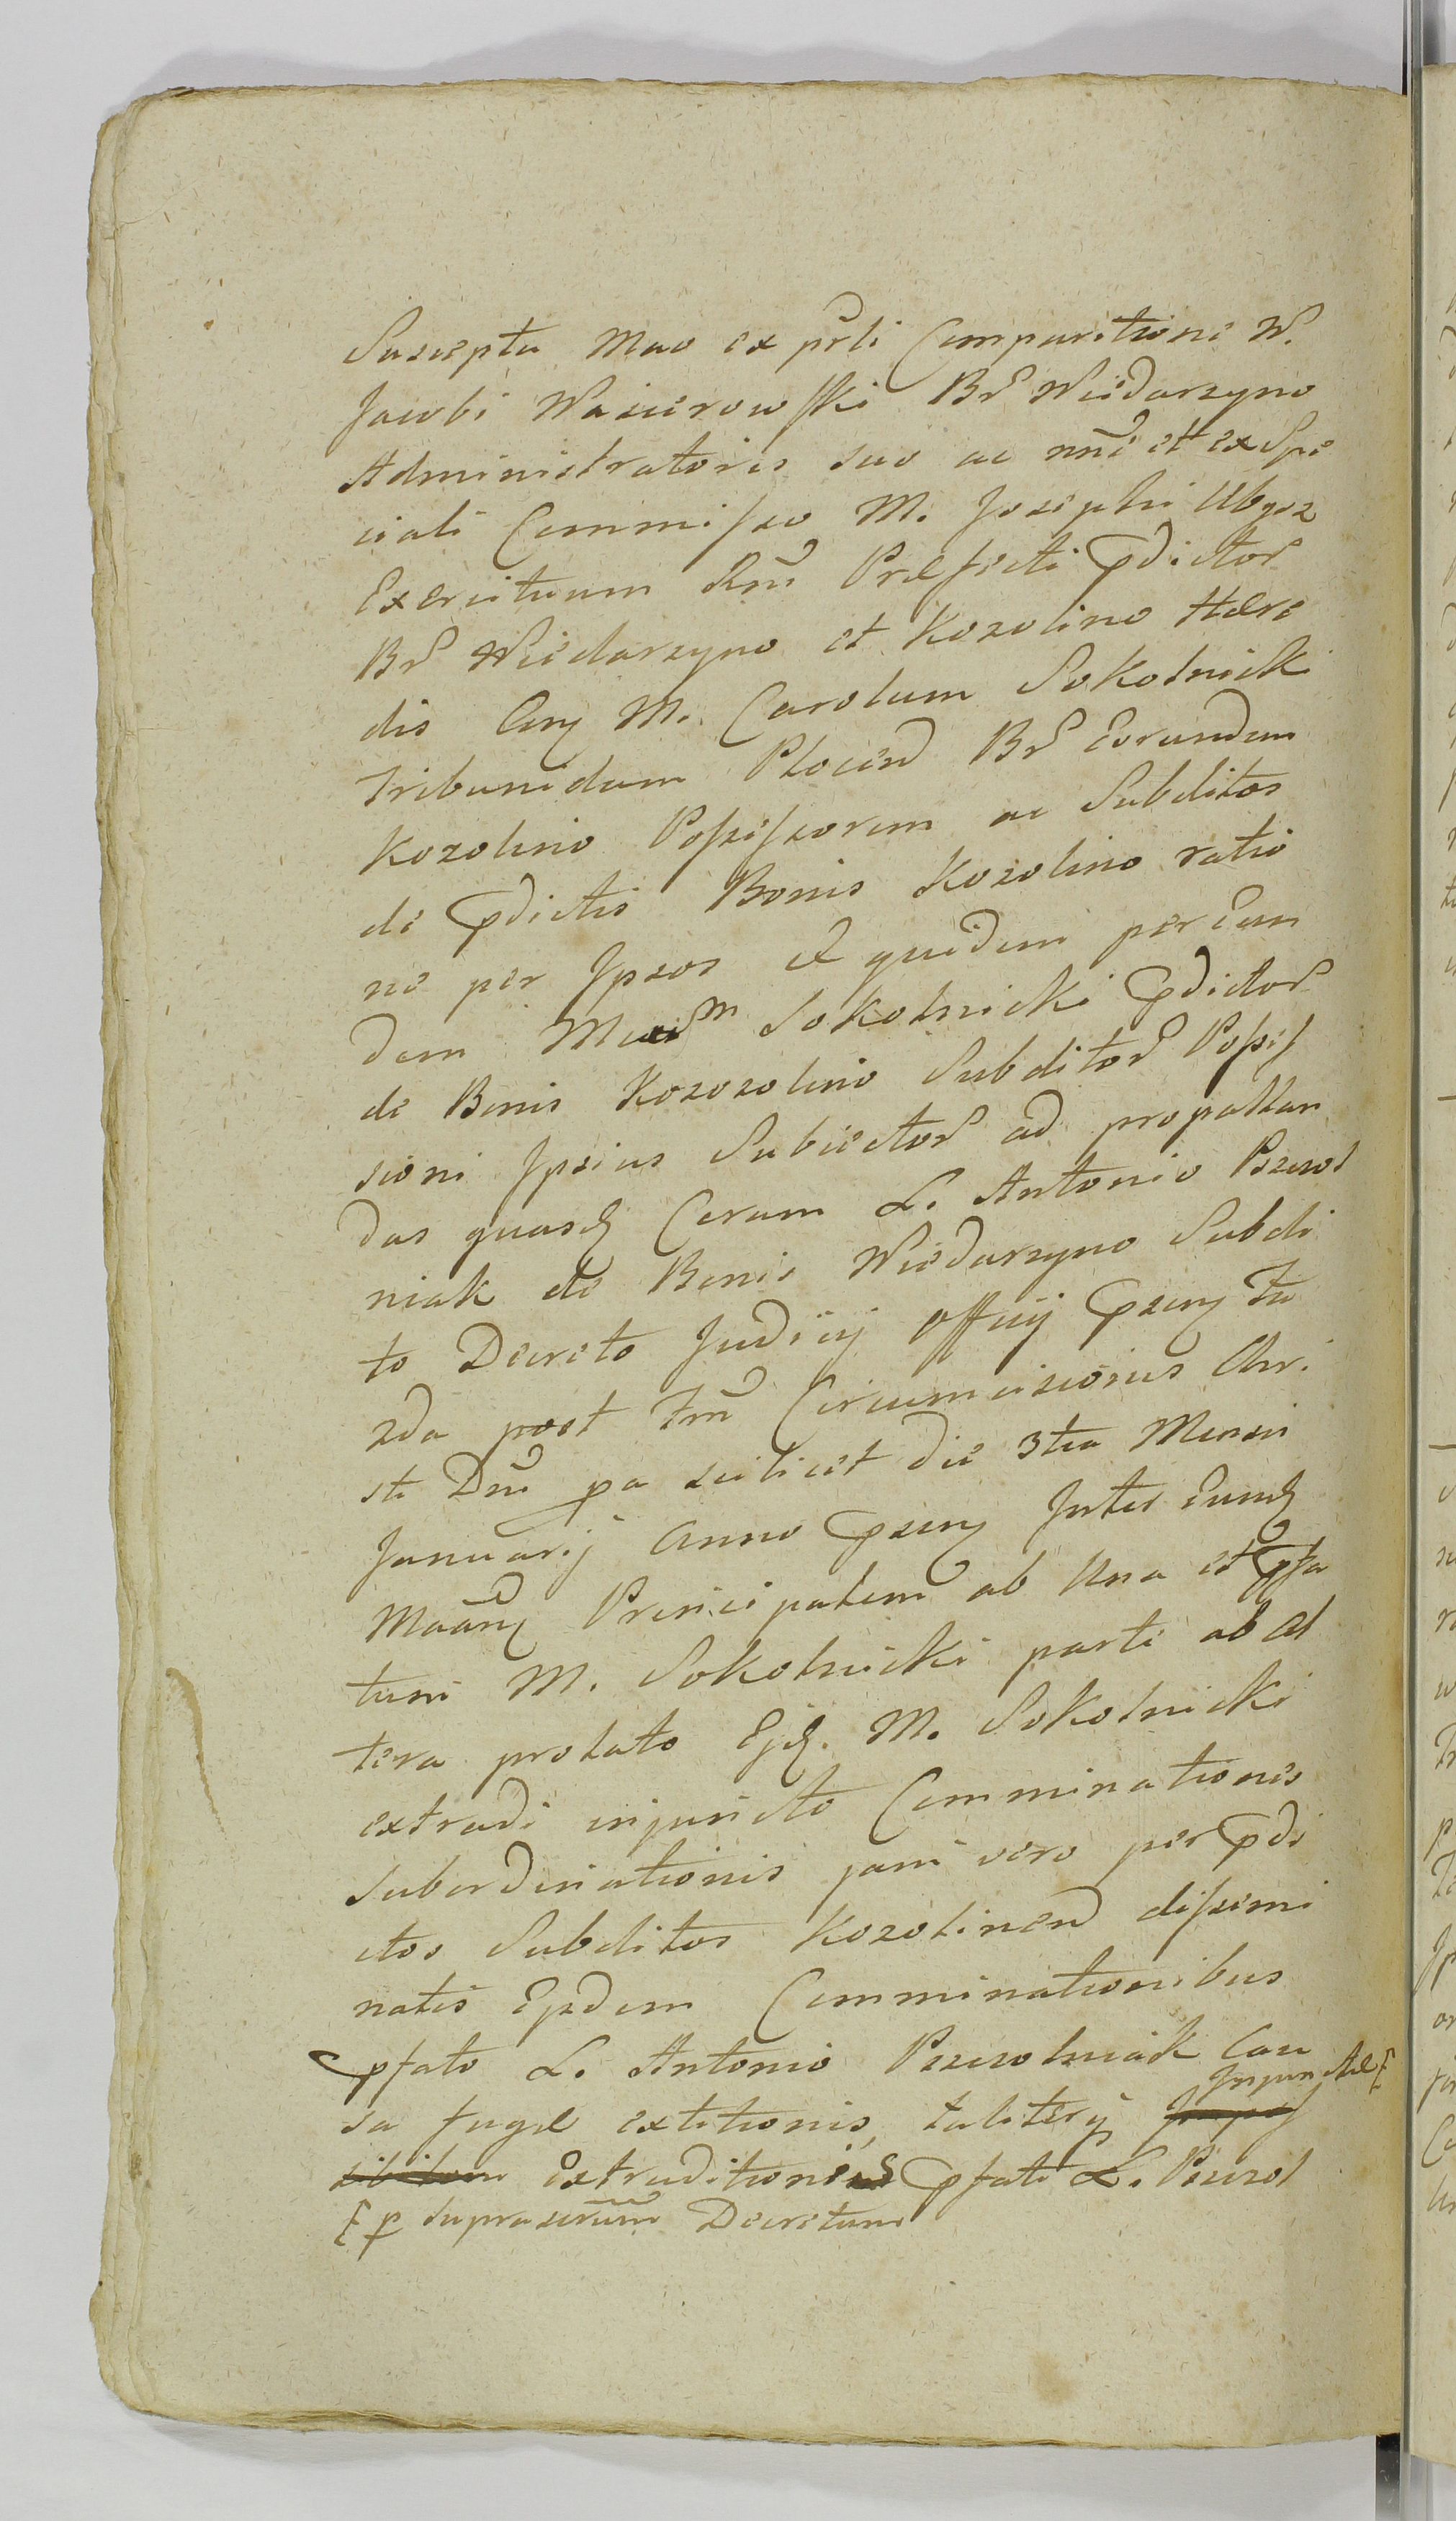 Suscepta Mao ex prli Comparitione W.
Jacobi Waszcrowski Br̃ Wiedarzyno
Administratoris suo ac nn̄e et ex Spe
ciali Commisso M. Josephi Ubysz
Exercituum Rn̄i Præfecti Pdictor̃
Br̃ Wiedarzyno et Kozolino Hære
dis Cum M. Carolum Sokolnicki
Tribunidam Plocen̄ Br̃ Eorundem
Kozolino Possessorem ac Subditos
de Pdictis Bonis Kozolino ratio
ne per Ipsos et quidem per Eun
dem Sokolnicki Pdictor̃
de Bonis Kozozolino Subditor̃ Posses
sioni Ipsius Subiector̃ ad propallan
das quasdam Coram L. Antonio Pszczol
niak de Bonis Wiedarzyno Subdi
to Decreto Judicy Officij Pseny Fu
zda post Fm̄ Circumcisionis Chri
sti Dn̄i pa scilicet die 3tia Mensis
Januarij Anno Pseny Inter Eumdem
Principalem ab Una et Pfa
tum M. Sokolnicki parte ab Al
tera prolato Ejd. M. Sokolnicki
extradi injuncto Comminationes
Subordinationis jam vero per Pdi
ctos Subditos Kozolinen̄ dissemi
natis Ejsdem Comminationibus
Pfato L. Antonio Pszczolniak Cau
sa fugæ extitionis, taliterq Injunctæ
Extraditionis Pfati L. Pszczol
p Suprascrum̄ Decretum